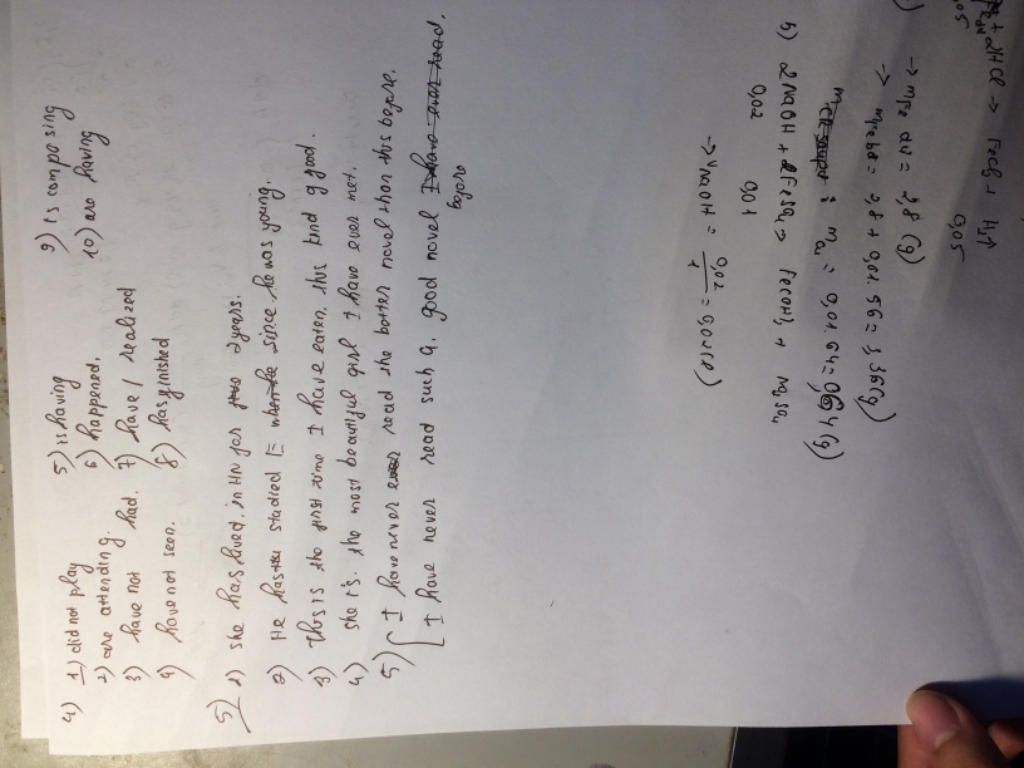 4) 1) did not play 5) is having 9) is composing
2) are attending. 6) happened. 10) are having
3) have not had. 7) have / realized
4) have not seen. 8) has finished
5) 1) she has lived in HN for 2 years.
2) He has studied E since he was young.
3) This is the first time I have eaten this kind of food.
4) she is the most beautiful girl I have ever met.
5) I have never read the better novel than this before.
I have never read such a good novel before
+ 2HCl → FeCl2 + H2↑
0,05 0,05
→ mFe dư = 2,8 (g)
→ = 2,8 + 0,01.56 = 3,36 (g)
mCu = 0,01.64 = 0,64 (g)
b) 2NaOH + FeSO4 → Fe(OH)2 + Na2SO4
0,02 0,01
→ VNaOH = 0,02/1 = 0,02 (l)